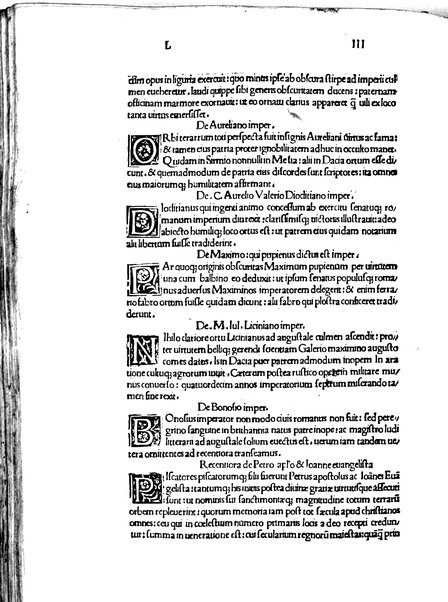 L III
cisim opus in liguria exercuit: quo minus ipse ab obscura stirpe ad imperii cul
men eueheretur, laudi quippe sibi generis obscuritatem ducens: paternam
officinam marmore exornauit: ut eo ornatu clarius appareret q̃ uili ex loco
tanta uirtus emersisset.
De Aureliano imper.
ORbi terrarum tot perspecta fuit insignis Aureliani uirtus ac fama:
& tamen eius patria propter ignobilitatem adhuc in occulto manet.
Quidam in Sirmio nonnulli in Mesia: alii in Dacia ortum esse di
cunt. & quemadmodum de patria eius discordes sunt scriptores: ita omnes
eius maiorumq; humilitatem affirmant.
De C. Aurelio Valerio Dioclitiano imper.
DIoclitianus qui ingenti animo concessum ab exercitu senatuq; ro
manum imperium diu rexit: clarissimisq; uictoriis illustrauit: adeo
abiecto humiliq; loco ortus est: ut patrem eius quidam notarium
alii libertum fuisse tradiderint.
De Maximo: qui pupienus dictus est imper.
PAr quoq; originis obscuritas Maximum pupienum per uirtutem
una cum balbino eo deduxit: ut ipsum senatus populusq; roma
nus aduersus Maximinos imperatorem delegerit: & enim ferra
rio fabro ortum fuisse quidam dicunt: alii fabro qui plostra conficeret tradi
derunt.
De .M. Iul. Liciniano imper.
NIhilo clariore ortu Licinianus ad augustale culmen ascendit: pro
ter uirtutem belliq; gerendi scientiam Galerio maximino augusto
comes datus. Is in Dacia puer patrem admodum inopem in ara
tione cultuq; agrorum iuuit. Cæterum postea rustico opere in militare mu/
nus conuerso: quatuordecim annos imperatorium sceptrum miserando ta/
men fine rexit.
De Bonoso imper.
BOnosius imperator non modo ciuis romanus non fuit: sed pere/
grino sanguine in britannia natus patre inope: ac magistro ludi
litterarii ad augustale solium euectus est. uerum iam tandem ue
tera omittentes ad recentiora transeamus.
Recentiora de Petro ap̃lo & Ioanne euangelista
PIscatores piscatorumq; filii fuerunt Petrus apostolus ac Ioães Euã
gelista: tantumq; his inuis postea diuinæ gratiæ uirtutisque assecuti
sunt: ut nominis sui sanctimoniaq; magnitudine totum terrarũ
orbem repleuerint: quorum memoria iam post tot sæcula apud christianos
omnes: ceu qui in cœlestium numero primariis locis a deo recepti credun/
tur: summa in ueneratione est: cui secularium regnorũ maiestas: quãq̃ prin